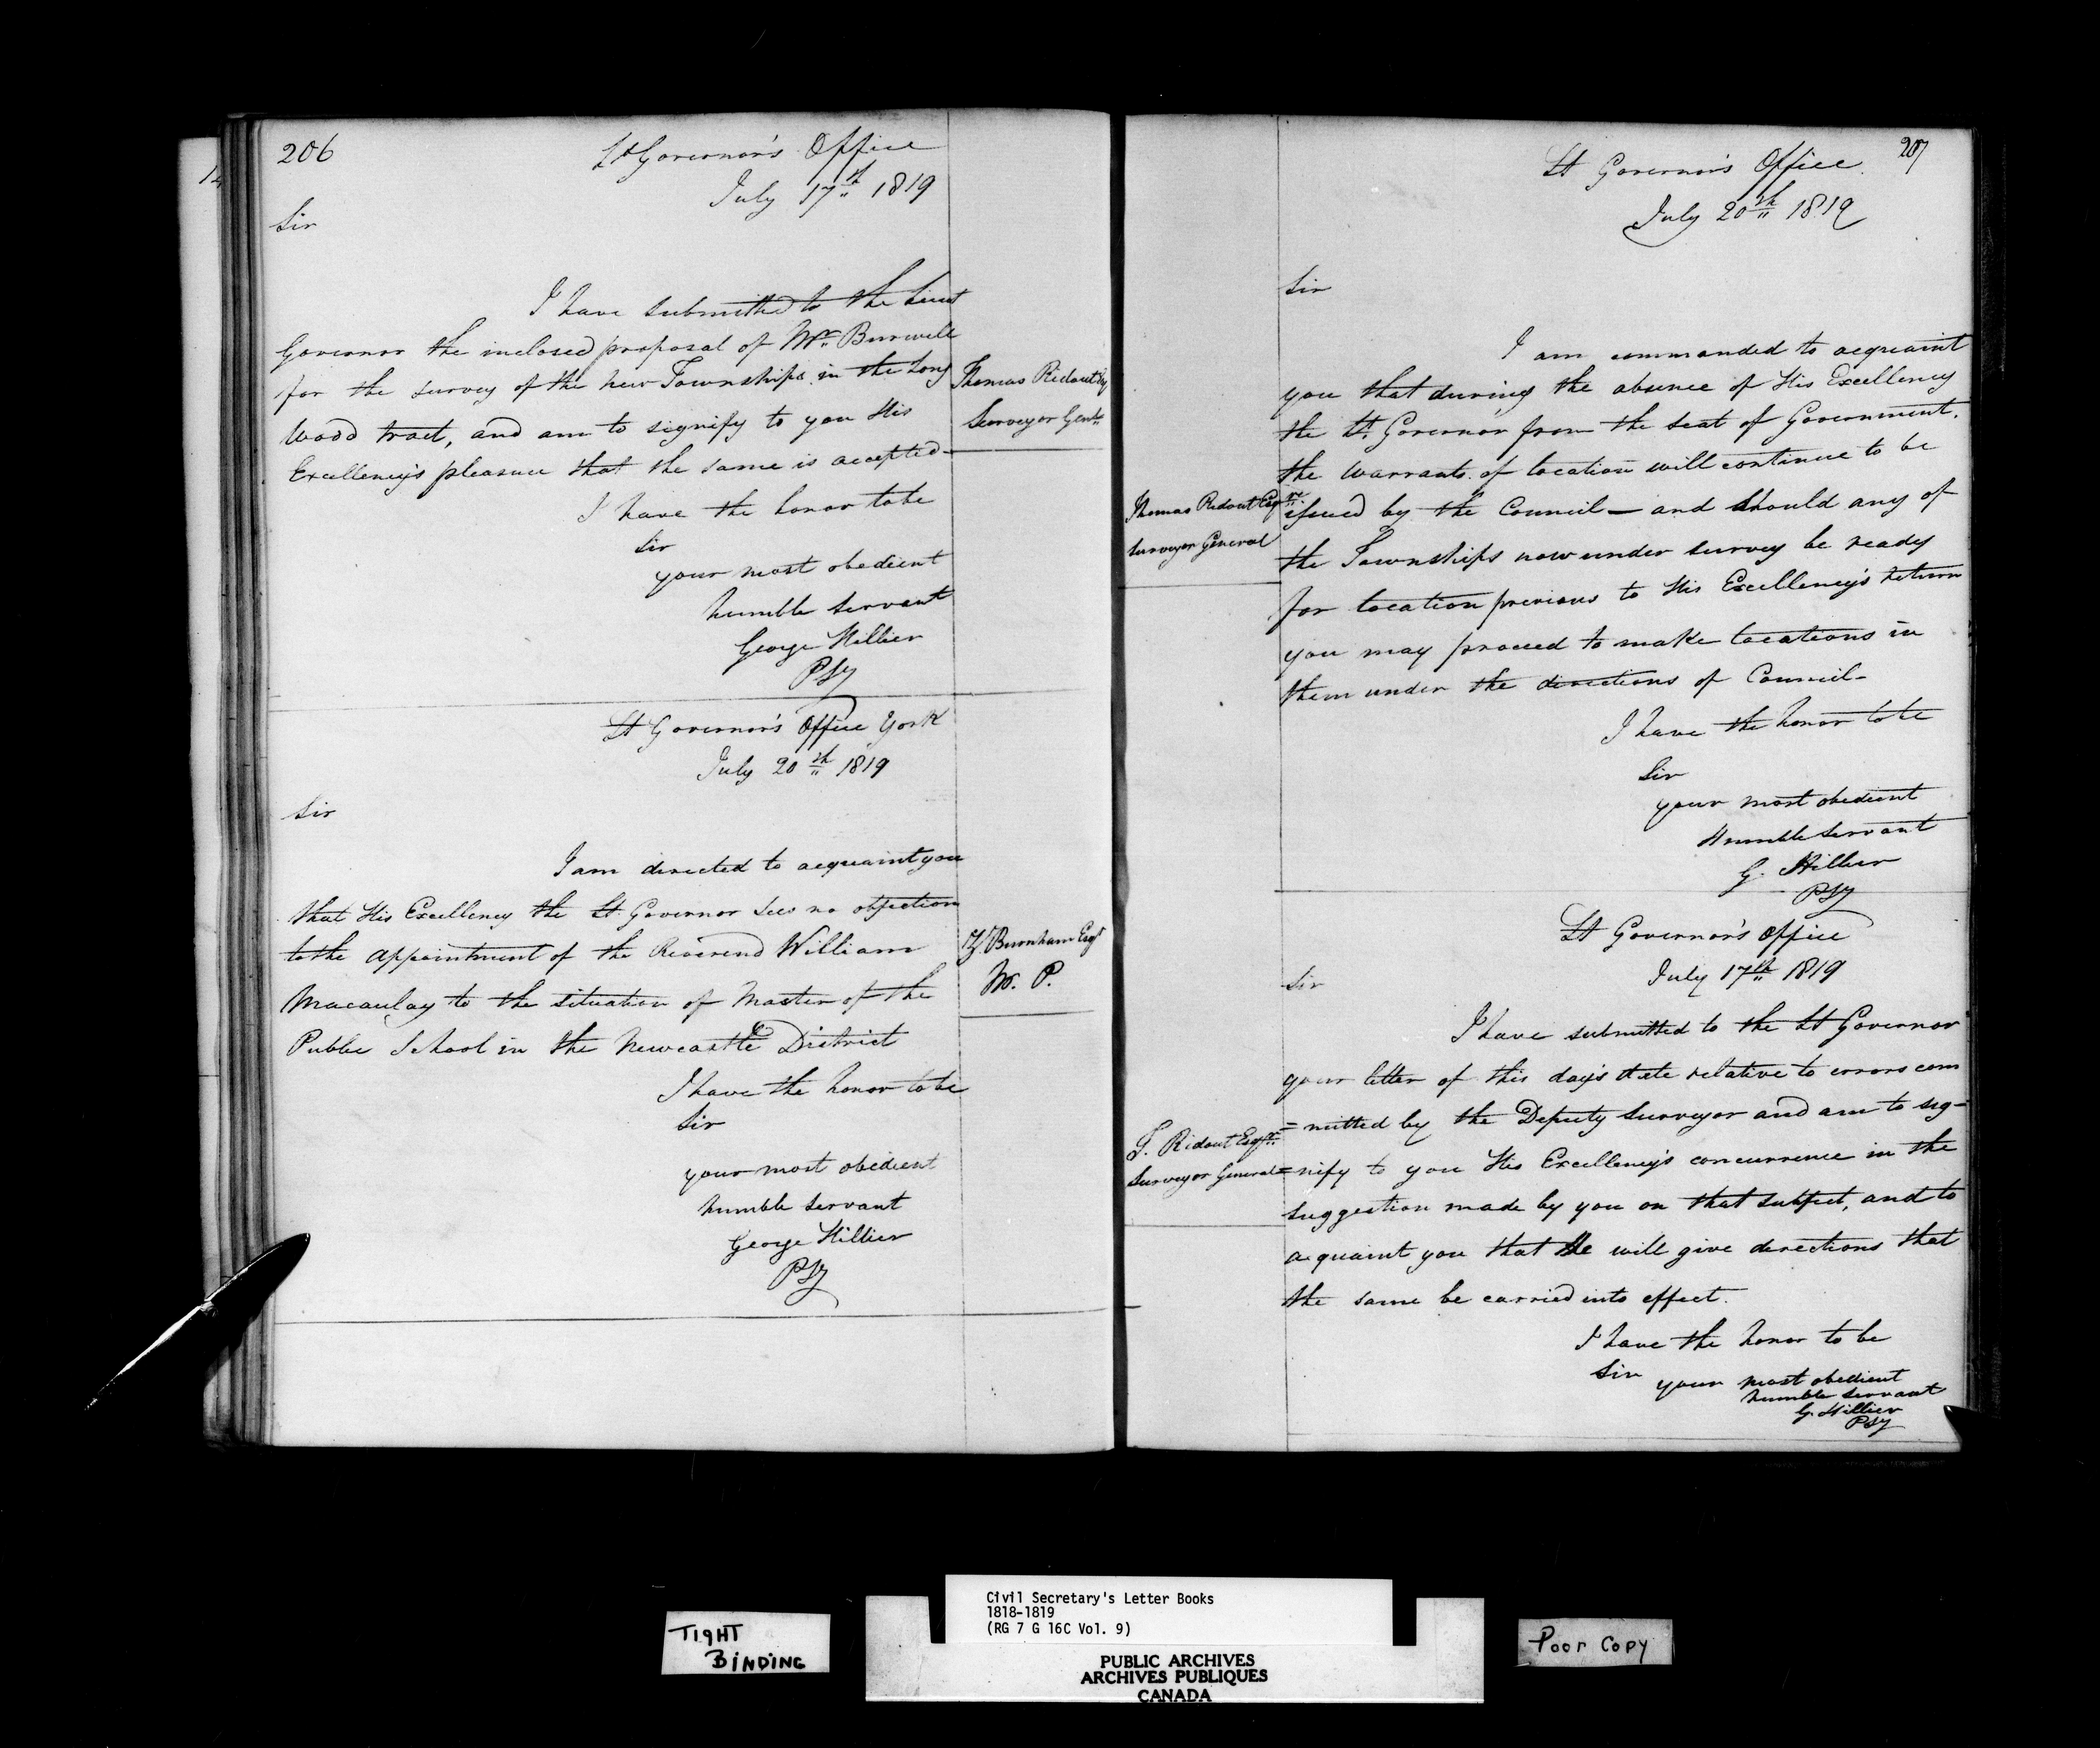 206
Lt Governor's Office
July 17th 1819
Sir
I have submitted to the Lieut
Governor the inclosed proposal of Mr. Burwell
for the survey of the new Townships in the Long
Wood tract, and am to signify to you His
Excellency's pleasure that the same is accepted-
I have the honor to be
Sir
your most obedient
humble servant
George Hillier
PSy
Thomas Ridout Esq
Surveyor Genl
Lt Governor's Office York
July 20th 1819
Sir
I am directed to acquaint you
that His Excellency the Lt Governor sees no objection
to the appointment of the Reverend William
Macaulay to the situation of Master of the
Public School in the Newcastle District
I have the honor to be
Sir
your most obedient
humble servant
George Hillier
PSy
Z. Burnham Esqr
M. P.
207
Lt Governor's Office
July 20th 1819
Sir
I am commanded to acquaint
you that during the absence of His Excellency
the Lt. Governor from the seat of Government.
the warrants of location will continue to be
issued by the Council — and should any of
the Townships now under survey be ready
for location previous to His Excellency's return
you may proceed to make locations in
them under the directions of Council-
I have the honor to be
Sir
your most obedient
Humble servant
G. Hillier
PSy
Thomas Ridout Esqr.
Surveyor General
Lt Governor's Office
July 17th 1819
Sir
I have submitted to the Lt Governor
your letter of this day's date relative to errors com
=mitted by the Deputy Surveyor and am to sig-
=nify to you His Excellency's concurrence in the
suggestion made by you on that subject, and to
acquaint you that He will give directions that
the same be carried into effect.
I have the honor to be
Sir
your most obedient
humble servant
G. Hillier
PSy
T. Ridout Esqr.
Surveyor General
TIGHT
BINDING
Civil Secretary's Letter Books
1818-1819
(RG 7 G 16C Vol. 9)
PUBLIC ARCHIVES
ARCHIVES PUBLIQUES
CANADA
Poor Copy